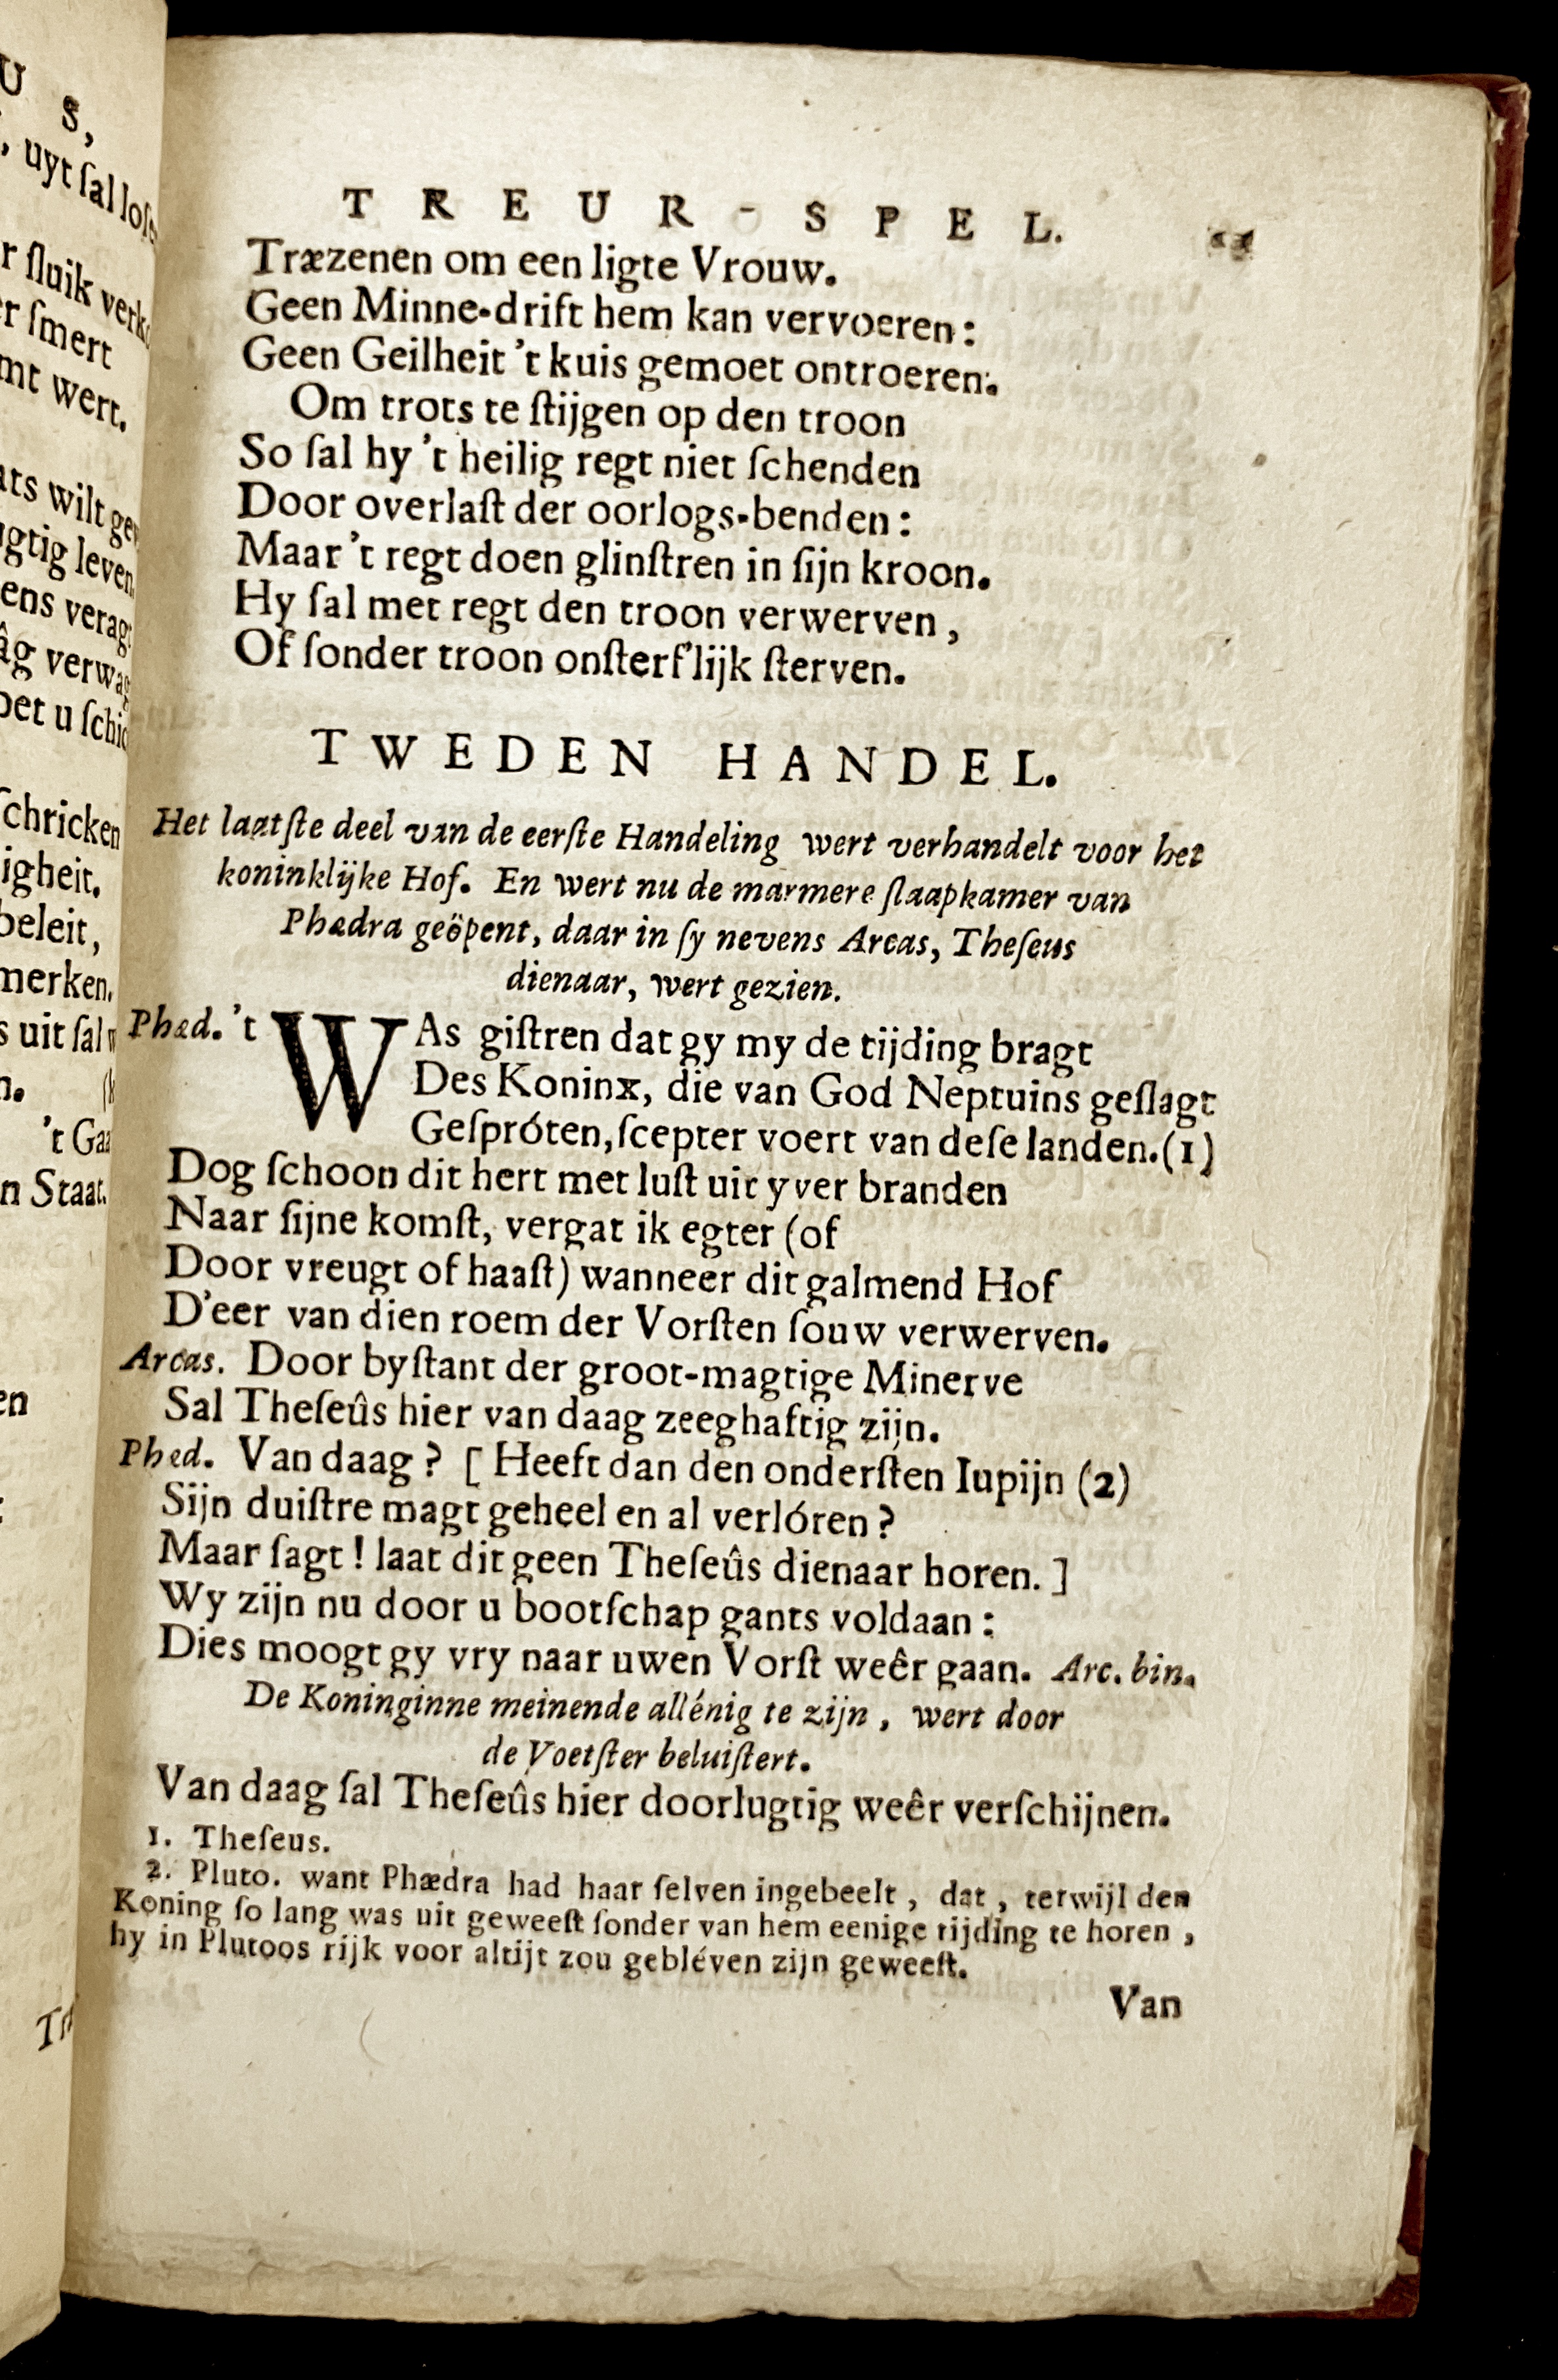 TREUR-SPEL.
Træzenen om een ligte Vrouw.
Geen Minne-drift hem kan vervoeren:
Geen Geilheit 't kuis gemoet ontroeren.
Om trots te ſtijgen op den troon
So ſal hy 't heilig regt niet ſchenden
Door overlaſt der oorlogs-benden:
Maar 't regt doen glinſtren in ſijn kroon.
Hy ſal met regt den troon verwerven,
Of ſonder troon onſterf'lijk ſterven.
TWEDEN HANDEL.
Het laatſte deel van de eerſte Handeling wert verhandelt voor het
koninklijke Hof. En wert nu de marmere ſlaapkamer van
Phædra geöpent, daar in ſy nevens Arcas, Theſeus
dienaar, wert gezien.
Phæd. 't WAs giſtren dat gy my de tijding bragt
Des Koninx, die van God Neptuins geſlagt
Geſpróten, ſcepter voert van deſe landen.(1)
Dog ſchoon dit hert met luſt uit yver branden
Naar ſijne komſt, vergat ik egter (of
Door vreugt of haaſt) wanneer dit galmend Hof
D'eer van dien roem der Vorſten ſouw verwerven.
Arcas. Door byſtant der groot-magtige Minerve
Sal Theſeûs hier van daag zeeghaftig zijn.
Phæd. Van daag? [Heeft dan den onderſten Iupijn (2)
Sijn duiſtre magt geheel en al verlóren?
Maar ſagt! laat dit geen Theſeûs dienaar horen.]
Wy zijn nu door u bootſchap gants voldaan:
Dies moogt gy vry naar uwen Vorſt weêr gaan. Arc. bin.
De Koninginne meinende allénig te zijn, wert door
de Voetſter beluiſtert.
Van daag ſal Theſeûs hier doorlugtig weêr verſchijnen.
1. Theſeus.
2. Pluto. want Phædra had haar ſelven ingebeelt, dat, terwijl den
Koning ſo lang was uit geweeſt ſonder van hem eenige tijding te horen,
hy in Plutoos rijk voor altijt zou gebléven zijn geweeſt.
Van